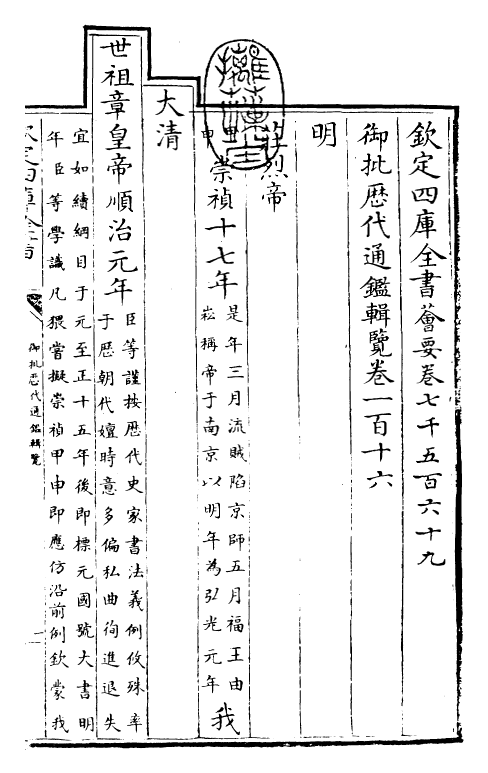 欽定四庫全書薈要卷七千五百六十九
御批厯代通鑑輯覽卷一百十六
明
莊烈帝
甲申 崇禎十七年 是年三月流賊陷京師五月福王由
崧稱帝于南京以明年為弘光元年 我
大清
世祖章皇帝順治元年 臣等謹按厯代史家書法義例攸殊率
于厯朝代嬗時意多偏私曲徇進退失
宜如續綱目于元至正十五年後即標元國號大書明
年臣等學識凡猥嘗擬崇禎甲申即應仿沿前例欽蒙我
欽定四庫全書
御批厯代通鑑輯覽